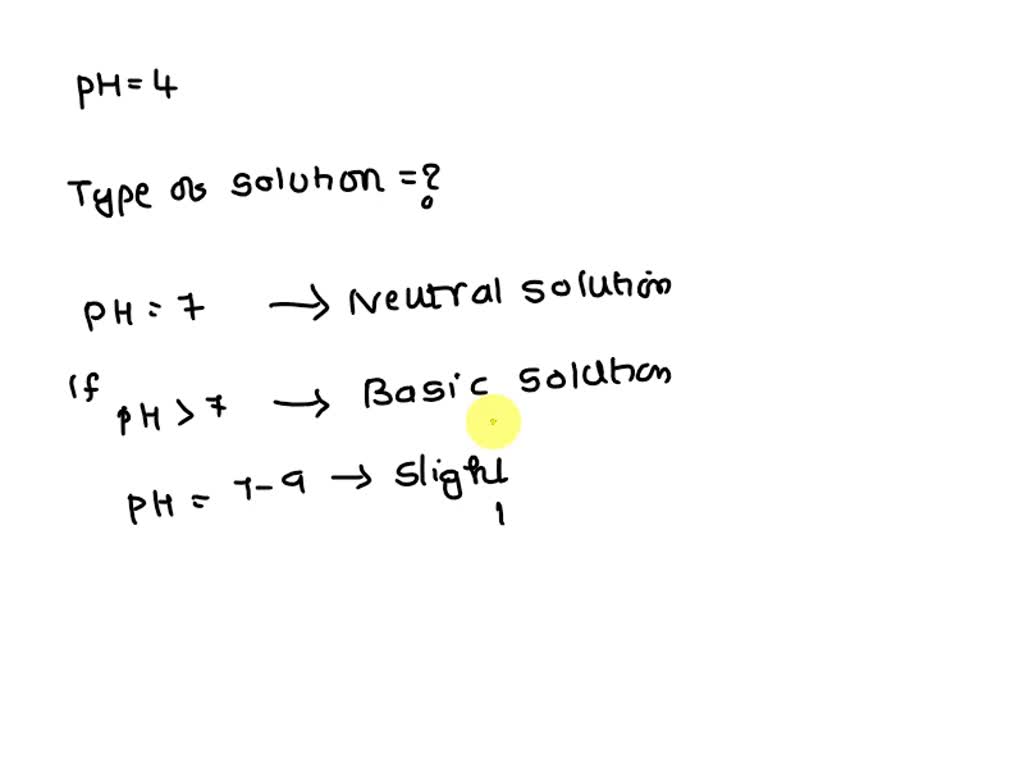 pH = 4
Type of solution = ?
pH = 7 → Neutral solution
If
pH > 7 → Basic solution
pH = 7-9 → Slight